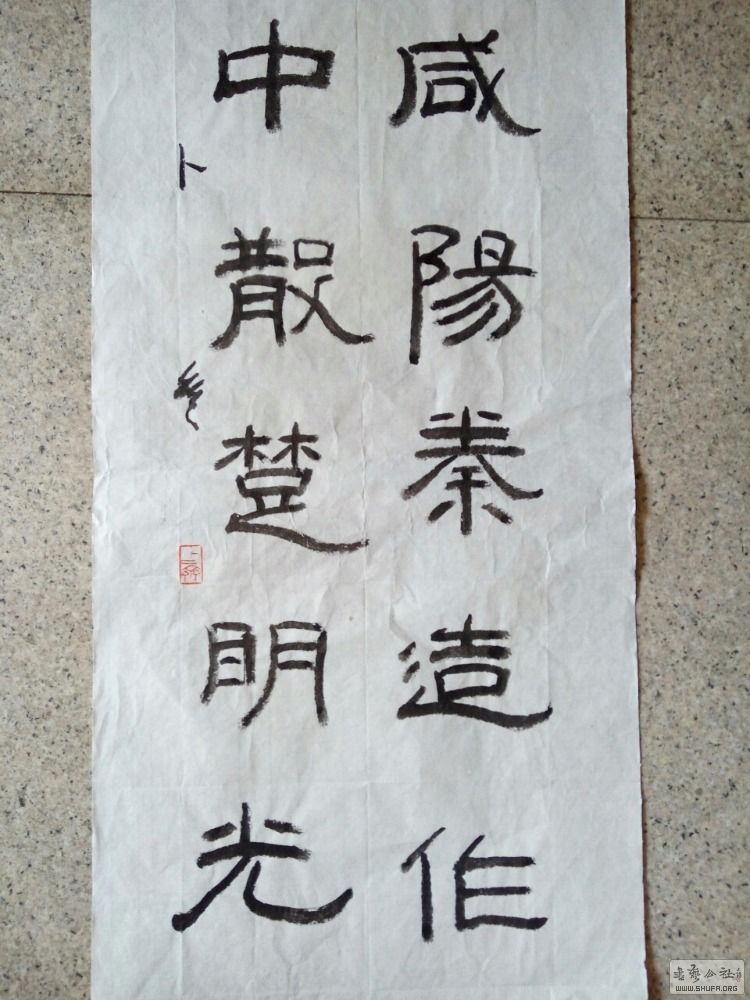 咸陽秦造作
中散楚明光
卜
WWW.SHUFA.ORG